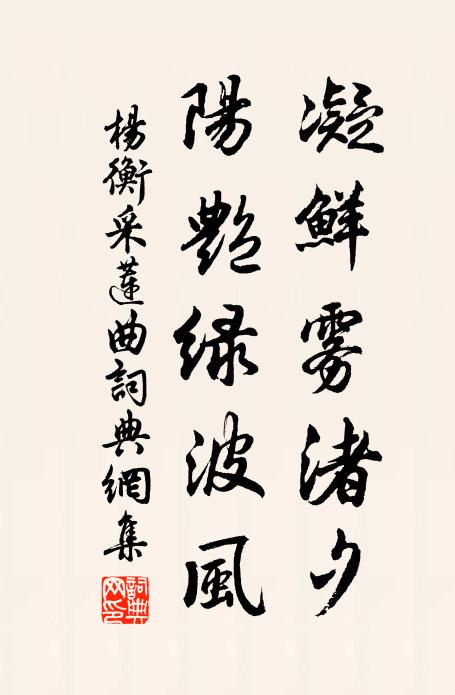 凝鮮雾渚夕
陽艷绿波風
楊衡采蓮曲詞典網集
詞典网印